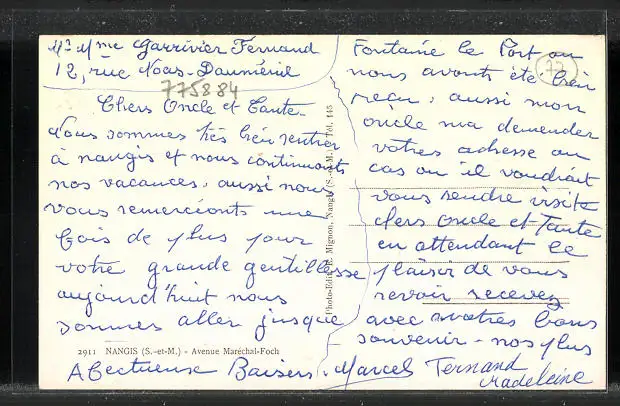 Mr Mme Garrivier Fernand
12, rue Noas-Dauménil
775884
Chers Oncle et Tante
Nous sommes très bien rentrer
à nangis et nous continuons
nos vacances, aussi nous
vous remercionts une
fois de plus pour
votre grande gentillesse
aujourd'huit nous
sommes aller jusque
2911 NANGIS (S.-et-M.) - Avenue Maréchal-Foch
Photo-Edit. E. Mignon, Nangis (S.-et-M.) Tél. 145
77
Fontaine le Port ou
nous avonts été bien
reçu, aussi mon
oncle ma demender
votres adresse au
cas ou il voudrait
vous rendre visite
chers oncle et Tante
en attendant le
plaisir de vous
revoir recevez
avec notres bons
souvenir - nos plus
Afectueuse Baisers. Marcel Fernand
Madeleine